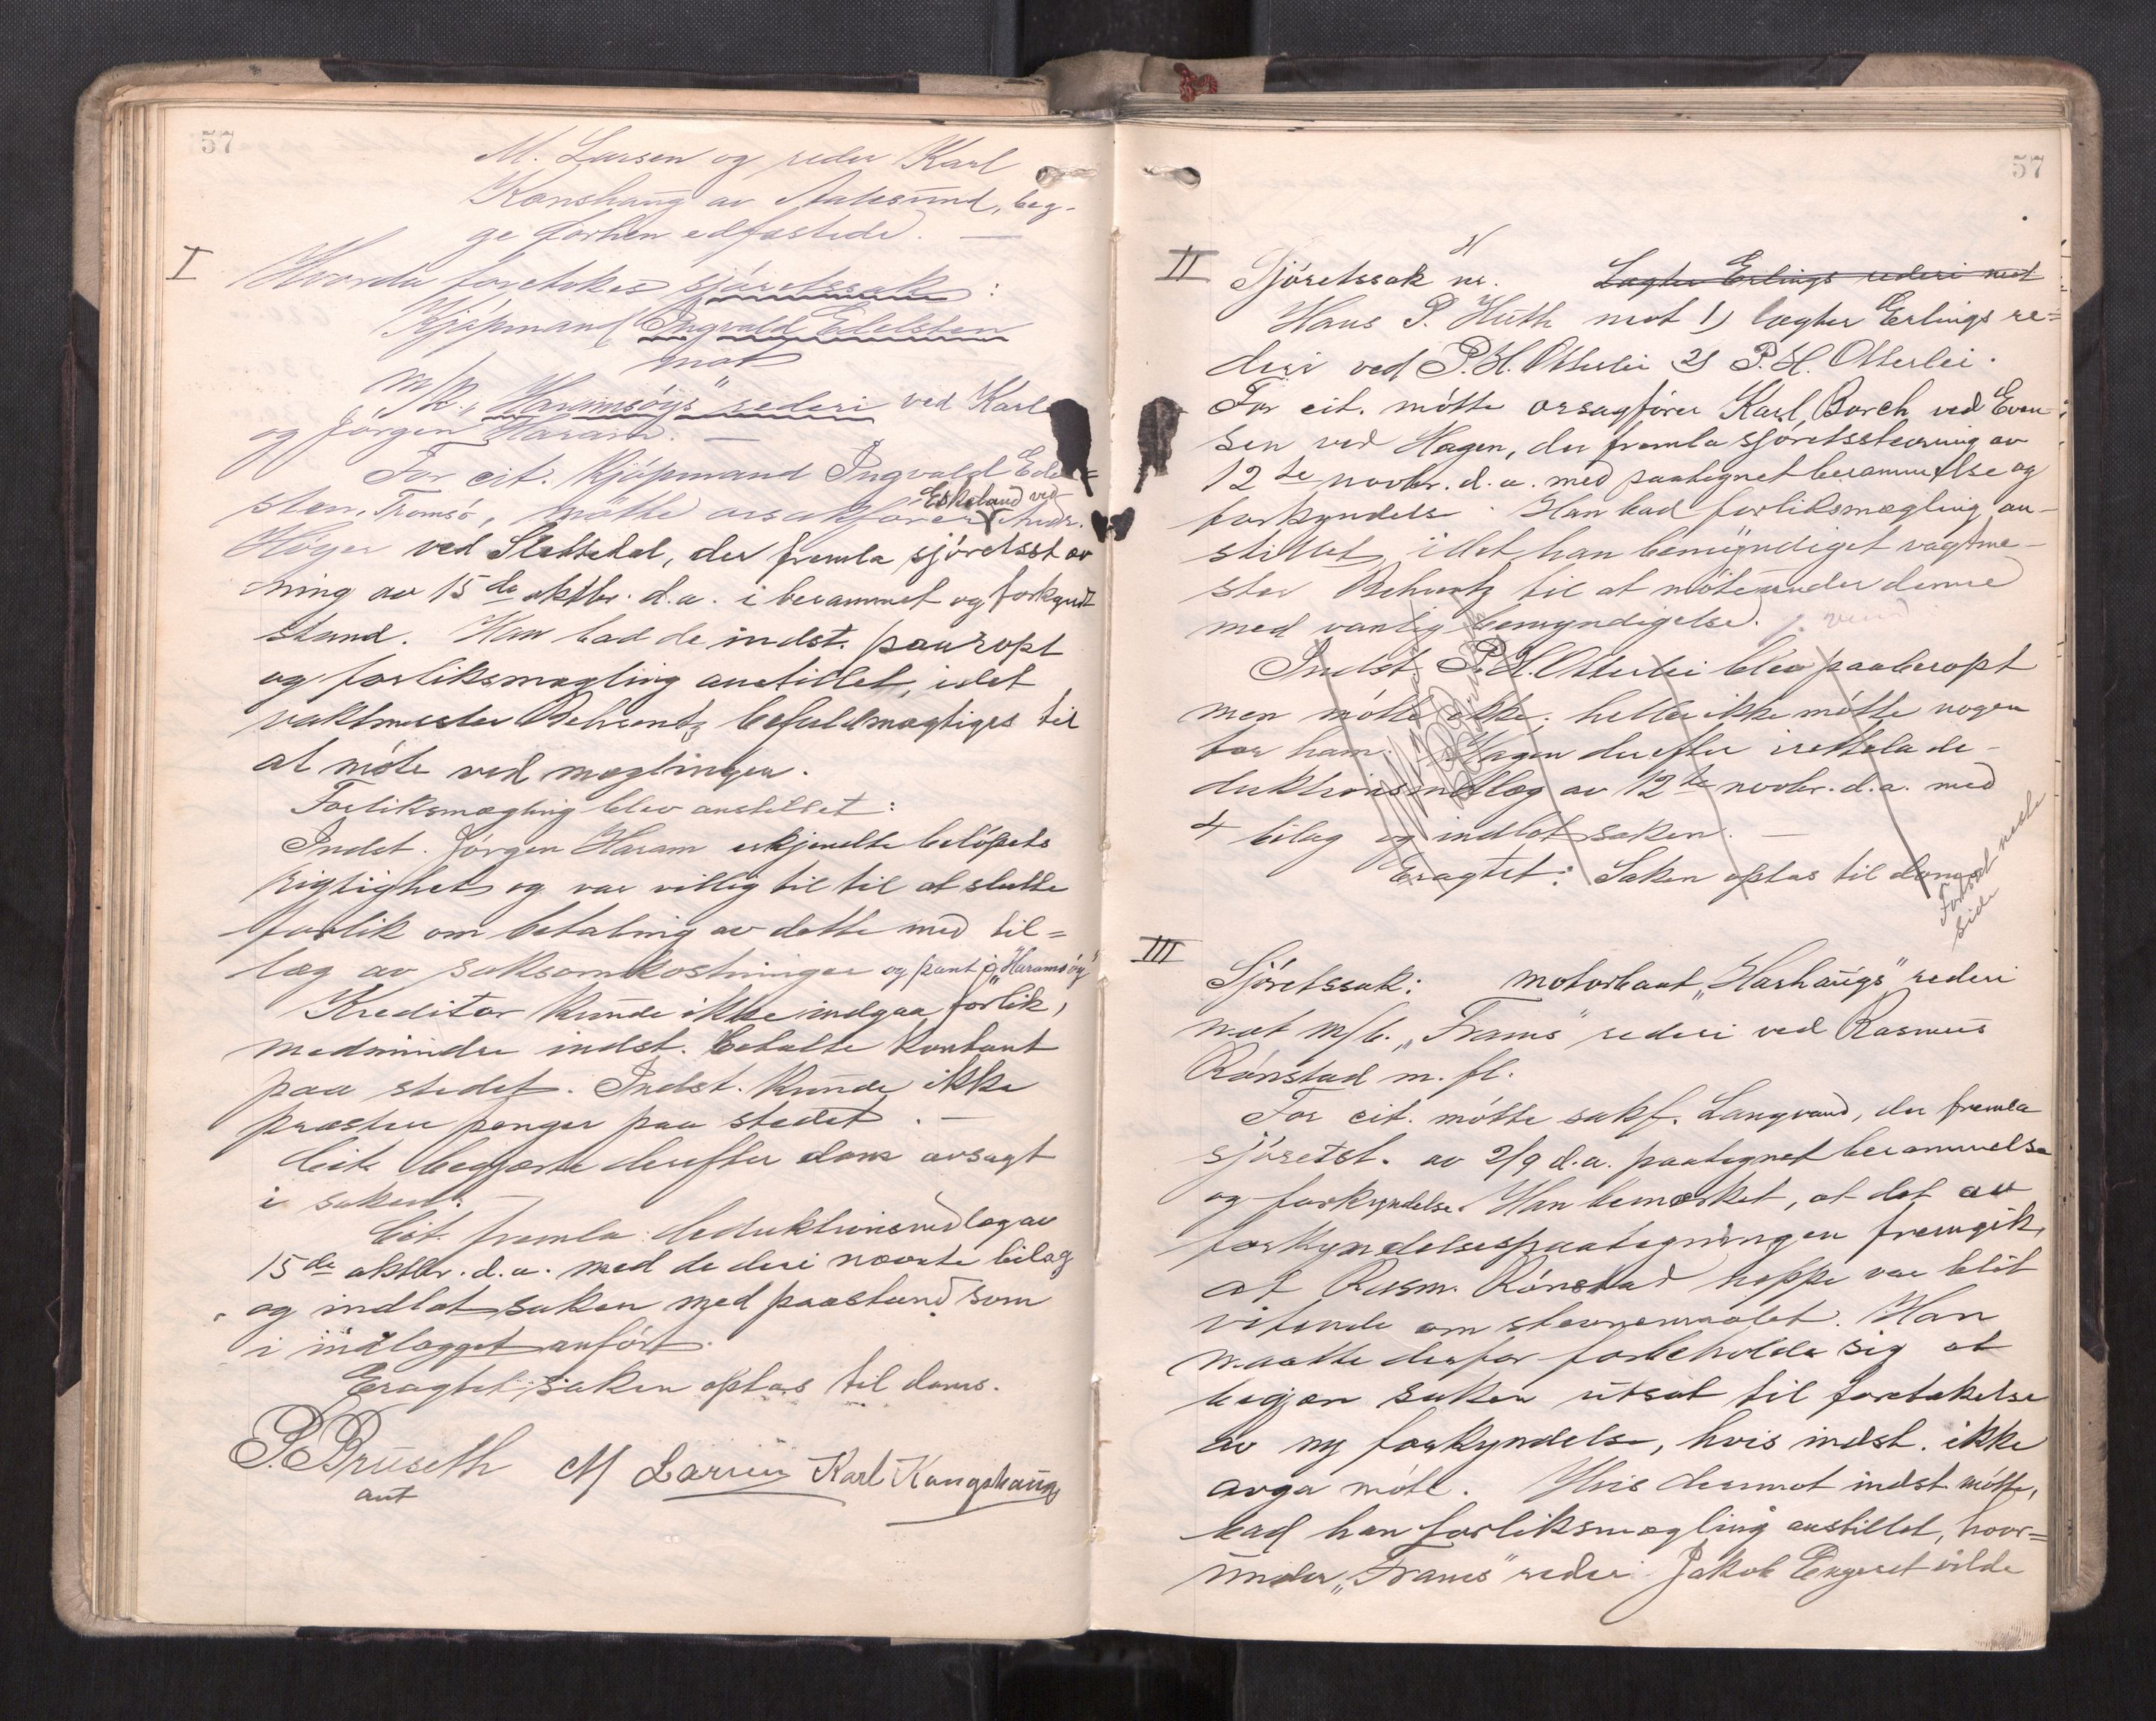 57
M. Larsen og reder Karl
Kongshaug av Aalesund, beg-
ge forhen edfæstede. —
I
Hvorda foretokes sjöretssak:
Kjöpmand Ingvald Edelsten
mot
m/k. „Haramsöys" rederi ved Karl
og Jörgen Haram. —
For cit. Kjöpmand Ingvald Edel=
sten, Tromsö, mötte orsakförer Andr.
Eskeland ved
Höyer ved Slettedal, der fremla sjöretsstev
ning av 15de oktbr. d.a. i berammet og forkyndt
stand. Han bad de indst. paaropt
og forliksmægling anstillet, idet
vaktmester Behrentz befuldmægtiges til
at möte ved mæglingen.
Forliksmægling blev anstillet:
Indst. Jörgen Haram erkjendte belöpets
rigtighet og var villig til til at slutte
forlik om betaling av dette med til=
læg av saksomkostninger og pant i „Haramsöy"
Kreditor kunde ikke indgaa forlik,
medmindre indst. betalte kontant
paa stedet. Indst. kunde ikke
præstere penger paa stedet. —
Cit. begjærte derefter dom avsagt
i saken. —
Cit. fremla deduktionsindlæg av
15de oktbr. d.a. med de deri nævnte bilag
og indlot saken med paastand som
i indlægget anfört.
Eragtet: saken optas til doms.
P. Bruseth
aut
M Larsen Karl Kongshaug
57
II
Sjöretssak nr. Lagter Erlings rederi mot
Hans P. Huth mot 1) lægter Erlings re=
deri ved P.H. Otterlei 2) P.H. Otterlei.
For cit. mötte orsagförer Karl Borch ved Even-
sen ved Hagen, der fremla sjöretsstevning av
12te novbr. d.a. med paategnet berammelse og
forkyndelse. Han bad forliksmægling an-
stillet, idet han bemyndiget vagtme-
ster Behrentz til at möte under denne
med vanlig bemyndigelse.
Indst. P.H. Otterlei blev paaberopt
men mötte ikke; heller ikke mötte nogen
for ham. Hagen derefter irettela de-
duktionsindlæg av 12te novbr. d.a. med
4 bilag og indlot saken. —
Eragtet: Saken optas til doms
Fortsat næste
side
III
Sjöretssak: motorbaat „Harhaugs" rederi
mot m/b. „Frams" rederi ved Rasmus
Rönstad m. fl.
For cit. mötte sakf. Langvand, der fremla
sjöretsst. av 2/9 d.a. paategnet berammelse
og forkyndelse. Han bemærket, at det av
forkyndelsespaategningen fremgik,
at Rasm. Rönstad neppe var blit
vitende om stevnemaalet. Han
maatte derfor forbeholde sig at
begjære saken utsat til foretakelse
av ny forkyndelse, hvis indst. ikke
avga möte. Hvis derimot indst mötte,
bad han forliksmægling anstillet, hvor=
under „Frams" reder Jakob Engeset vilde